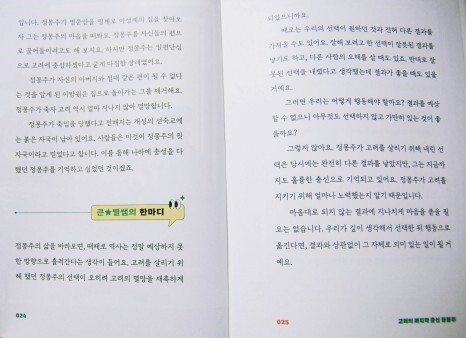 입니다. 정몽주가 병문안을 핑계로 이성계의 집을 찾아오
자 그는 정몽주의 마음을 떠봐요. 정몽주를 자신들의 편으
로 끌어들이려고도 해 보지요. 하지만 정몽주는 일편단심
으로 고려에 충성하겠다고 굳게 다짐한 상태였어요.
정몽주가 자신의 아버지와 절대 같은 편이 될 수 없다
는 것을 알게 된 이방원은 집으로 돌아가는 그를 해쳐해요.
정몽주가 죽자 고려 역시 얼마 지나지 않아 멸망합니다.
정몽주가 죽임을 당했다고 전해지는 개성의 선죽교에
는 붉은 자국이 남아 있어요. 사람들은 이것이 정몽주의 핏
자국이라고 믿었다고 합니다. 이를 통해 나라에 충성을 다
했던 정몽주를 기억하고 싶었던 것이겠죠.
큰★별쌤의 한마디
정몽주의 삶을 바라보면, 때때로 역사는 정말 예상하지 못
한 방향으로 흘러간다는 생각이 들어요. 고려를 살리기 위
해 했던 정몽주의 선택이 오히려 고려의 멸망을 재촉하게
024
되었으니까요.
때로는 우리의 선택이 원하던 것과 전혀 다른 결과를
가져올 수도 있어요. 잘해 보려고 한 선택이 잘못된 결과를
낳기도 하고, 다른 사람의 오해를 살 때도 있죠. 반대로 잘
못된 선택을 내렸다고 생각했는데 결과가 좋을 때도 있을
거예요.
그러면 우리는 어떻게 행동해야 할까요? 결과를 예상
할 수 없으니 아무것도 선택하지 않고 가만히 있는 것이 좋
을까요?
그렇지 않아요. 정몽주가 고려를 살리기 위해 내린 선
택은 당시에는 완전히 다른 결과를 낳았지만, 그는 지금까
지도 훌륭한 충신으로 기억되고 있어요. 정몽주가 고려를
지키기 위해 얼마나 노력했는지 알기 때문입니다.
마음대로 되지 않는 결과에 지나치게 마음을 쏟을 필
요는 없습니다. 우리가 깊이 생각해서 선택한 뒤 행동으로
옮긴다면, 결과와 상관없이 그 자체로 의미 있는 일이 될 거
예요.
025
고려의 마지막 충신 정몽주